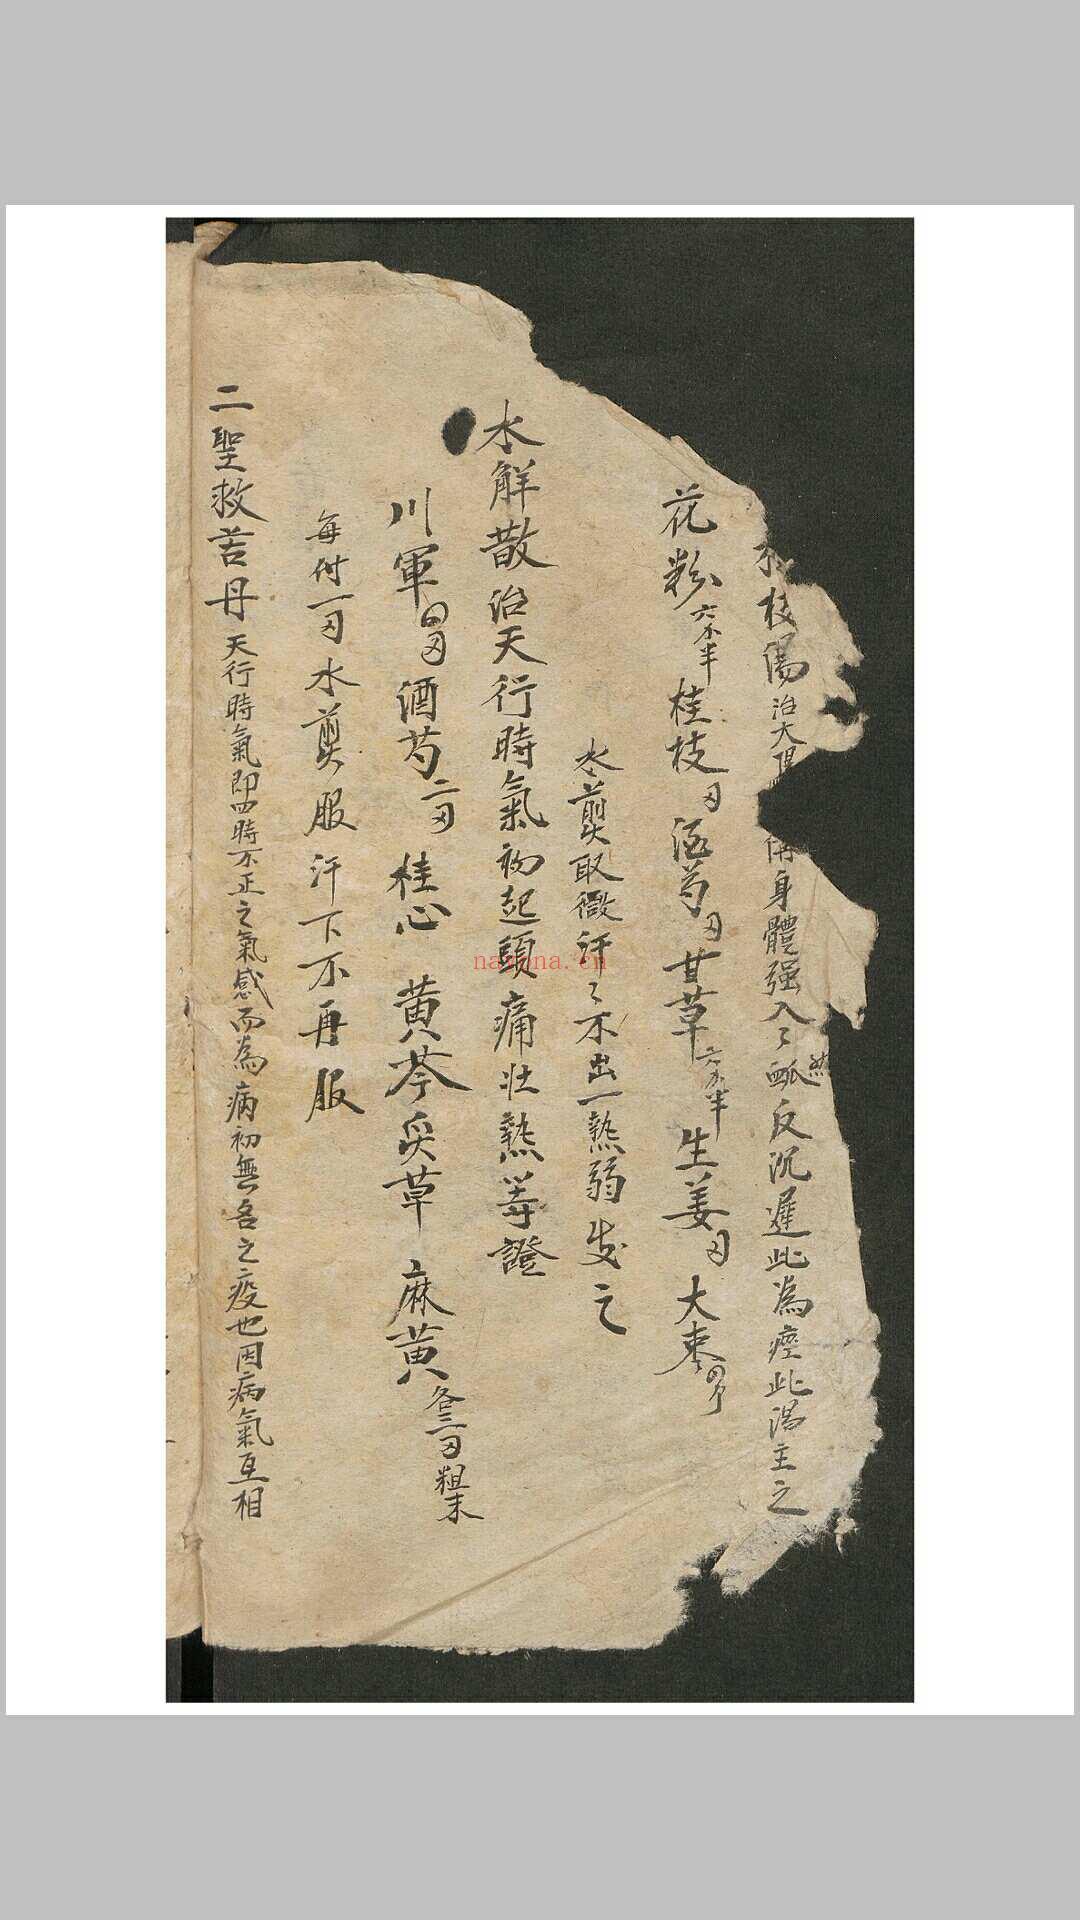 枝湯治太陽身體强入〻然脈反沉遲此為痙此湯主之
花粉六分半桂枝刄酒芍刄甘草六分半生姜刄大枣四个
水煎取微汗〻不出一熱弱发之
水解散治天行時氣初起頭痛壯熱等證
川軍四刄酒芍二刄桂心黄芩炙草麻黄各三刄粗末
每付一刄水煎服汗下不再服
二聖救苦丹天行時氣即四時不正之氣感而為病初無名之疫也因病氣互相
nayona.cn